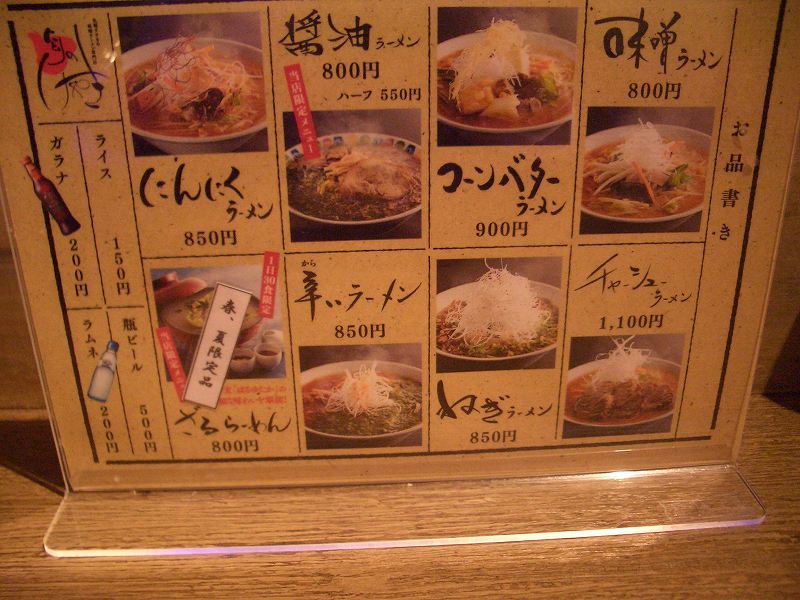 お品書き
味噌ラーメン
800円
チャーシューラーメン
1,100円
コーンバターラーメン
900円
ねぎラーメン
850円
醤油ラーメン
800円
ハーフ 550円
当店限定メニュー
から
辛いラーメン
850円
にんにくラーメン
850円
1日30食限定
春、夏限定品
当店限定メニュー
ざるらーめん
800円
ライス
150円
ガラナ
200円
瓶ビール
500円
ラムネ
200円